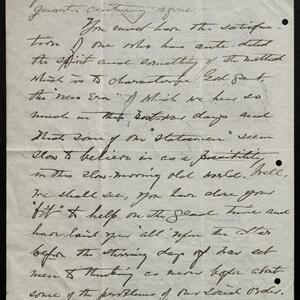 quarter century agone.
You must have the satisfac-
tion of one who has ante-dated
the spirit and something of the method
which is to characterize God grant,
the "new Era" of which we hear so
much in these days and
which some of our "statesmen" seem
slow to believe in as a possibility
in this slow-moving old world. Well
we shall see, you have done your
"bit" to help on the glad time and
have laid your all upon the altar
before the stirring days of war set
men to thinking as never before about
some of the problems of our social order.